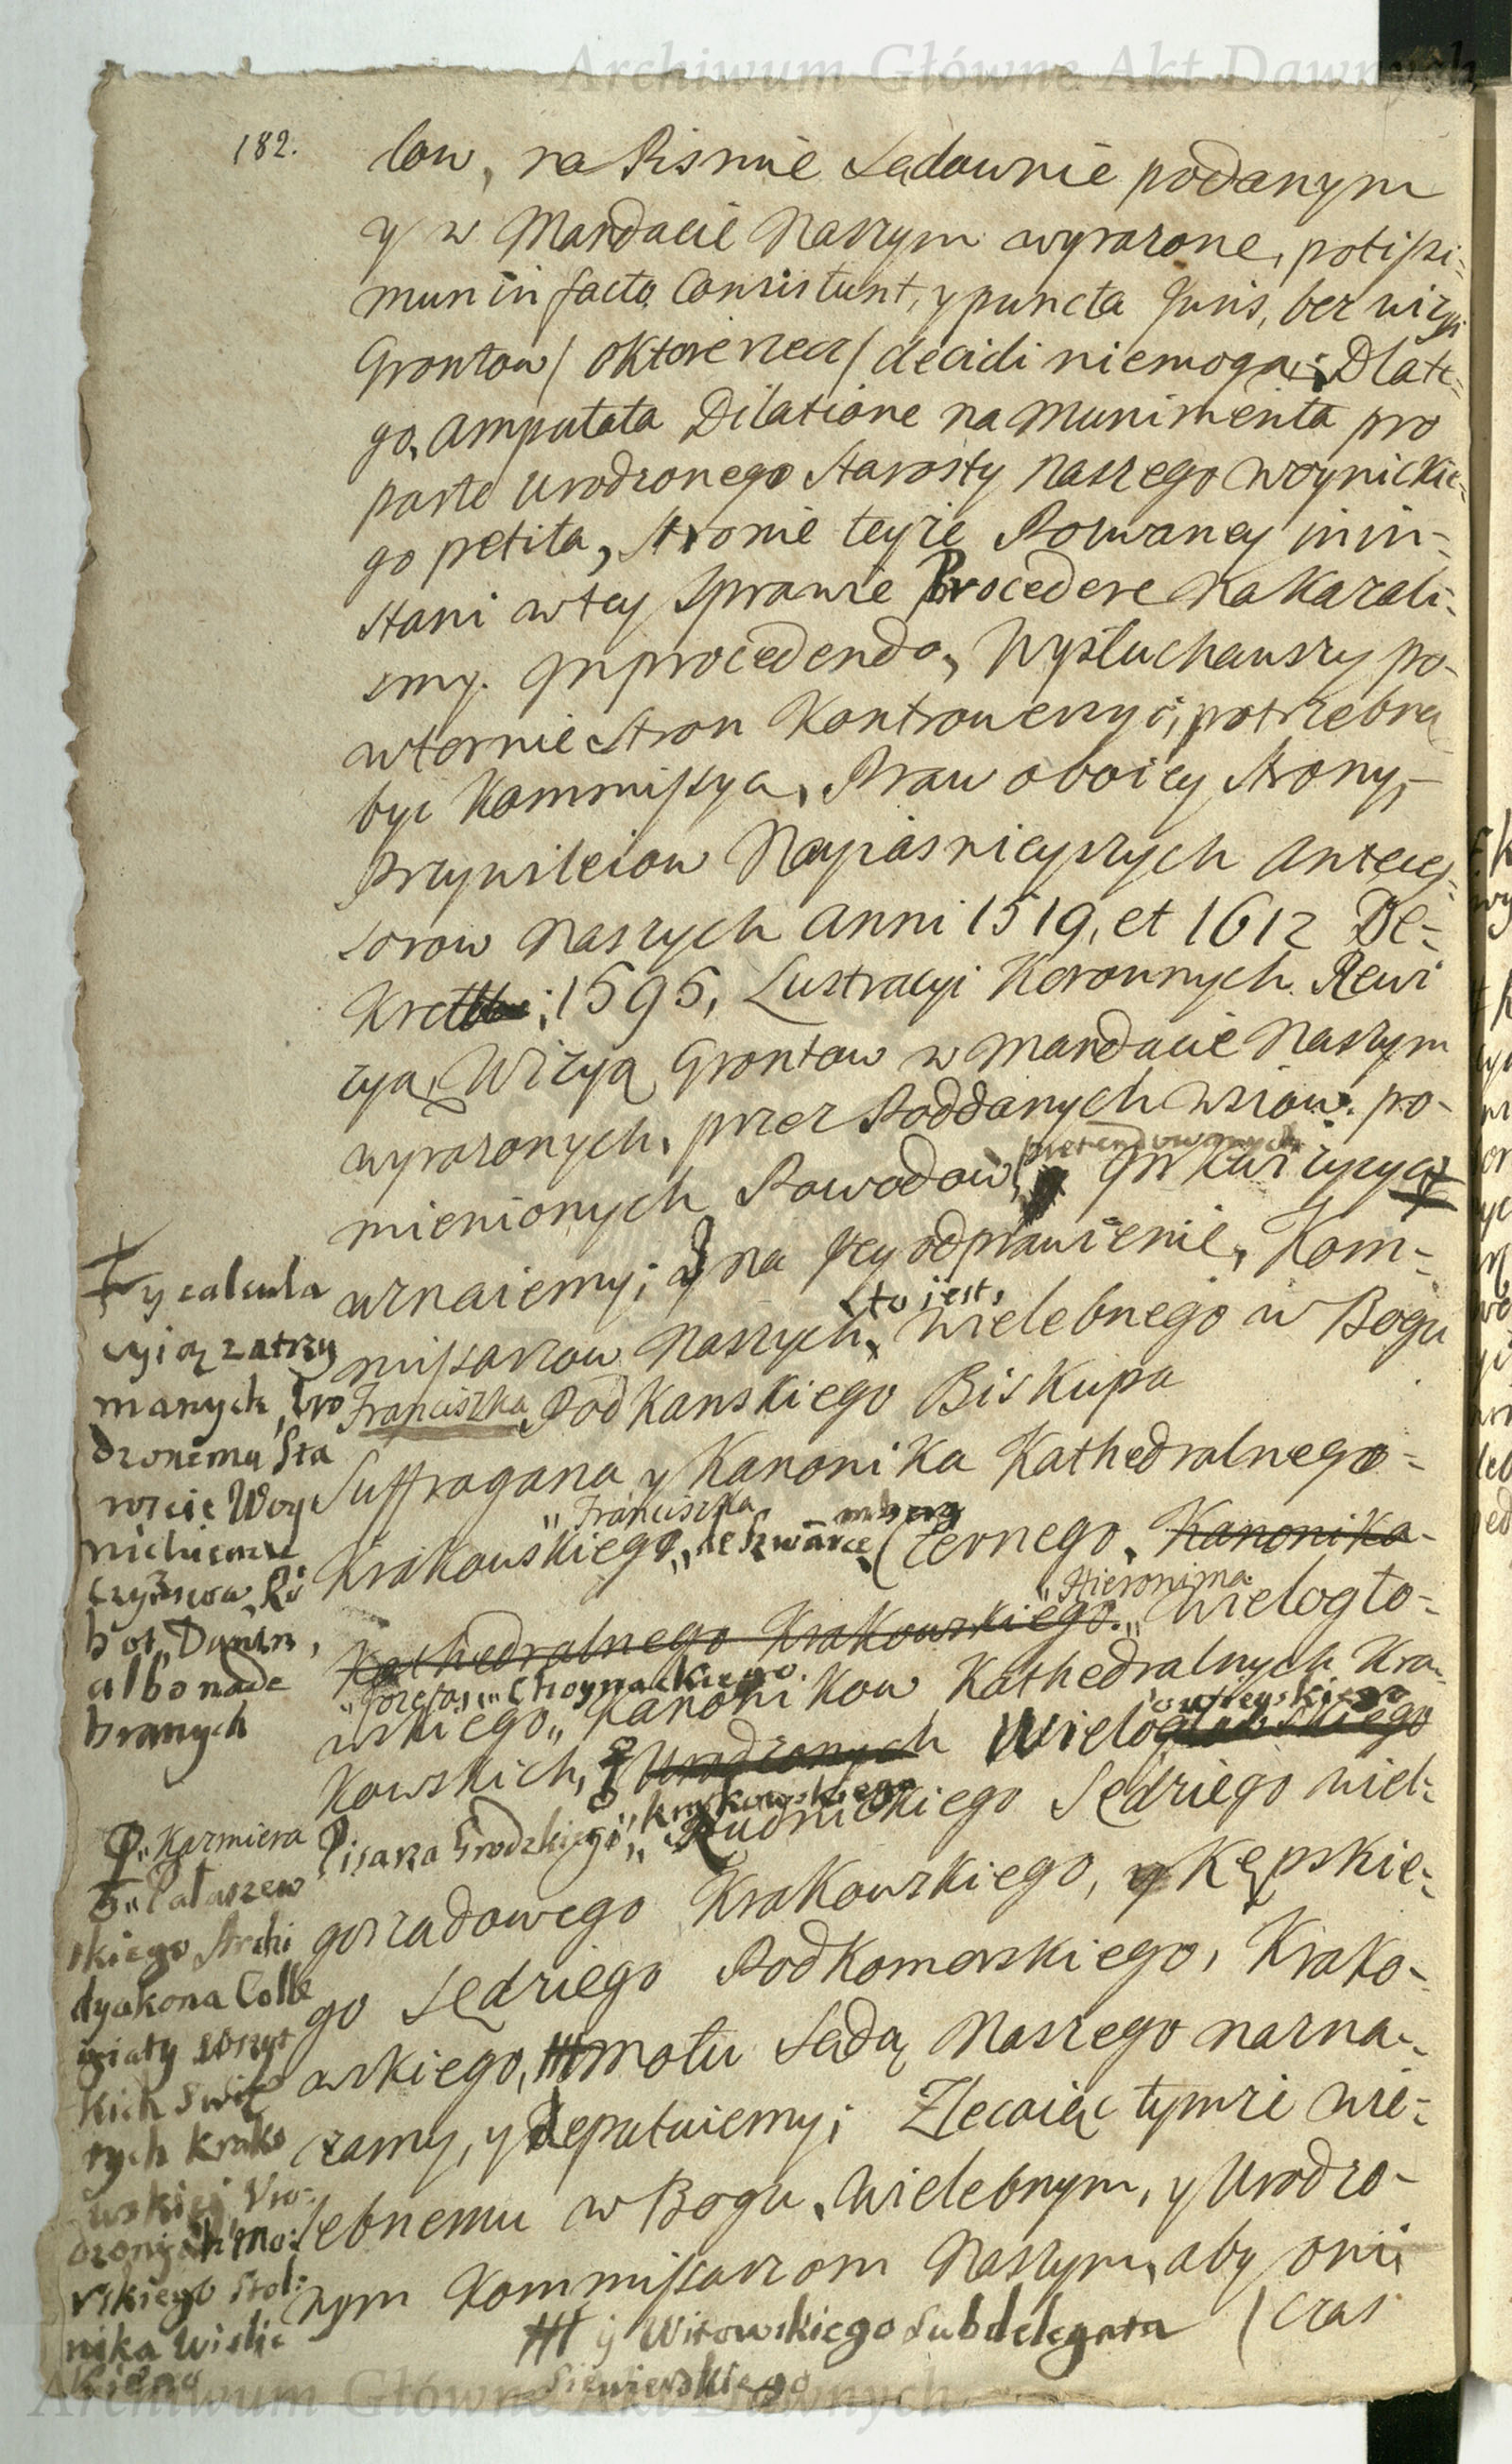 Archiwum Główne Akt Dawnych
182.
low, na Pismie Sądownie podanym
y w Mandacie Naszym wyrazone, potissi-
mum in facto Consistunt, y puncta Juris, bez wizyi
Grontow / o ktore rzecz / decidi niemogą; Dlate-
go, amputata Dilatione na Munimenta pro
parte Urodzonego Starosty Naszego Woynickie-
go petita, Stronie teyże Pozwaney in in-
stanti w tey Sprawie Procedere Nakazali-
smy. In procedendo, Wysłuchawszy po-
wtornie Stron Kontrowersyi, potrzebną
byc Kommissyą, Praw oboiey Strony,
Przywileiow Nayiasnieyszych Anteces-
sorow Naszych Anni 1519, et 1612 De-
kret 1595, Lustracyi Koronnych Rewi
zyą, Wizyą Grontow w Mandacie Naszym
wyrazonych, przez Poddanych wsiow po-
mienionych Powodow, pretendowanych Inkwizycyą
uznaiemy; y na Jey odprawienie, Kom-
missarzow Naszych, to iest, Wielebnego w Bogu
Franciszka Podkanskiego Biskupa
Suffragana y Kanonika Kathedralnego
Krakowskiego, „Franciszka de Szwarcemberg Czernego, Kanonika
Kathedralnego Krakowskiego. „Hieronima Wielogło-
wskiego, „Jozefa, „Choynackiego Kanonikow Kathedralnych Kra-
kowskich, Urodzonych Wielogłowskiego
Pisarza Grodzkiego, „Kmykowskiego Rudnickiego Sędziego wiel-
gorządowego Krakowskiego, y Kępskie-
go Sędziego Podkomorskiego, Krako-
wskiego, ## motu Sądą Naszego nazna-
czamy, y Deputuiemy; Zlecaiąc tymze Wie-
lebnemu w Bogu, Wielebnym, y Urodzo-
nym Kommissarzom Naszym, aby oni
(czas
y calcula
cyią zatrzy
manych Uro
dzonemu Sta
roscie Woy
nickiemu
Czynszow, Ro
bot, Danin,
albo nade
branych
„Kazmierza
„Pałaszew
skiego Archi
dyakona Colle
giaty wszyt
kich Swię
tych Krako
wskiej Uro-
dzonych Mo-
rskiego Stol-
nika Wislic
kiego
## y Witowskiego Subdelegata
Siewierskiego
Archiwum Główne Akt Dawnych